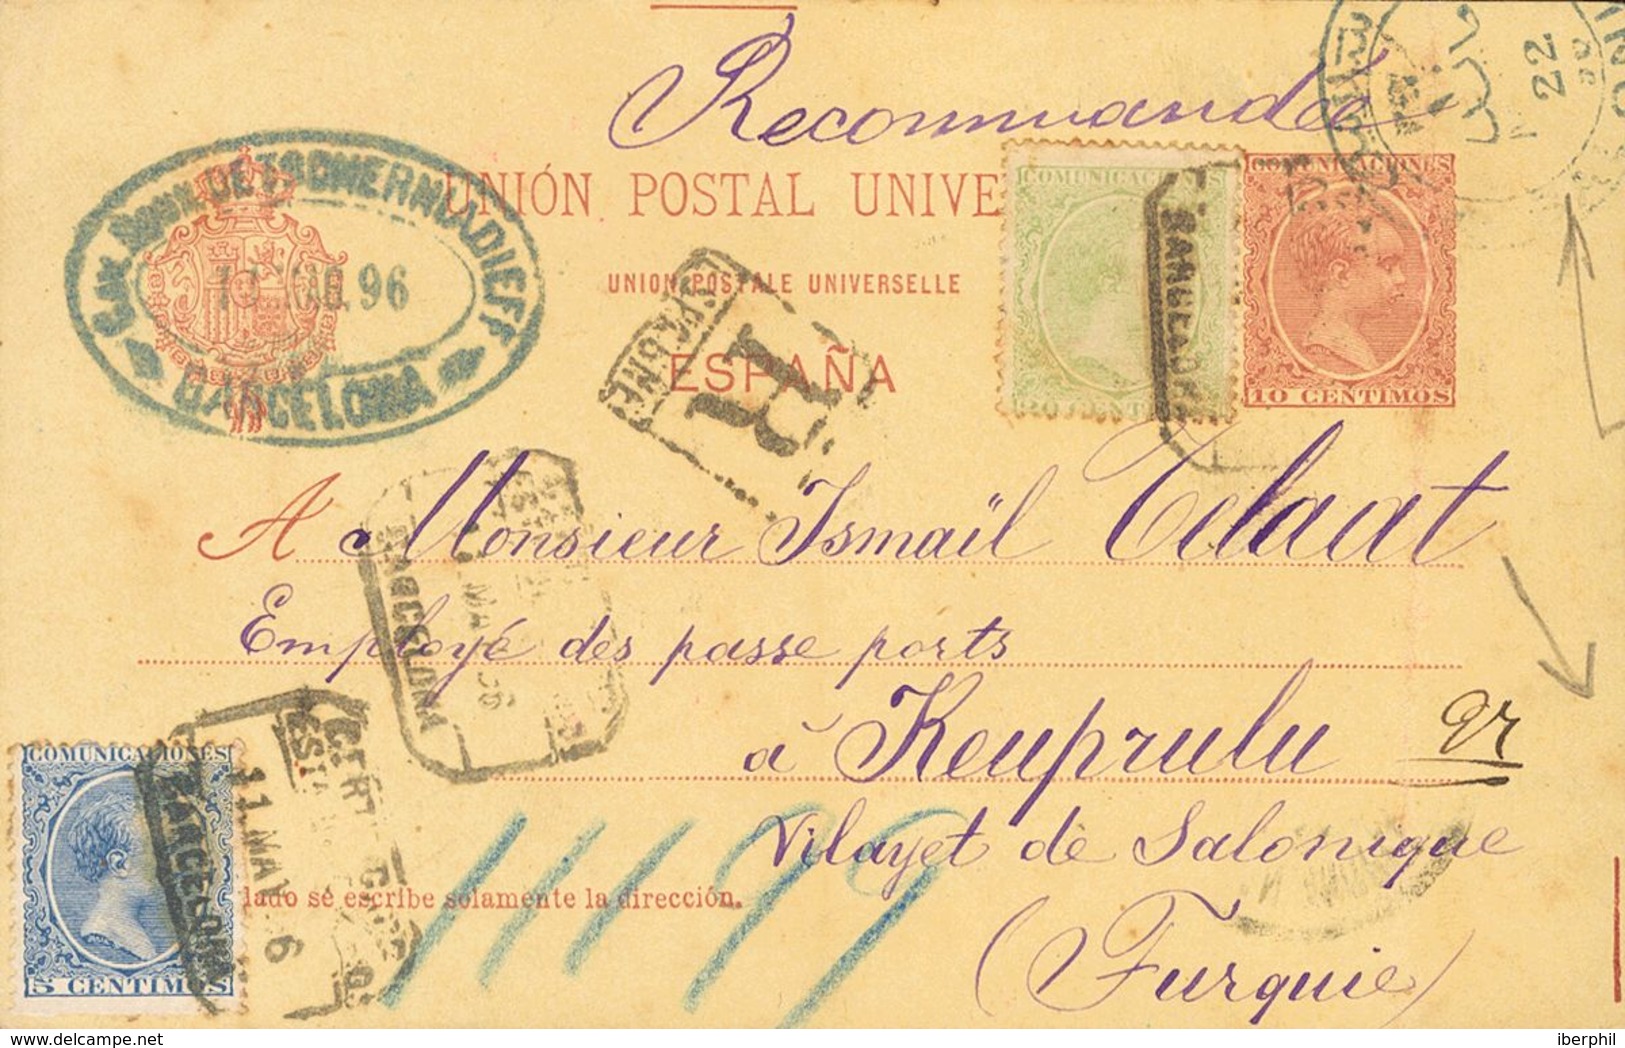 Recommandée
COMUNICACIONES
COMUNICACIONES
22
UNIÓN POSTAL UNIVE
96
BARCELONA
UNION POSTALE UNIVERSELLE
R
BARCELONA
ESPAÑA
10 CENTIMOS
A Monsieur Ismaïl Talaat
BARCELONA
Employé des passe ports
à Keuprulu
COMUNICACIONES
CERT
11 MAY 96
BARCELONA
Vilayet de Salonique
lado se escribe solamente la dirección.
11199
5 CENTIMOS
(Turquie)
delcampe.net
iberphil